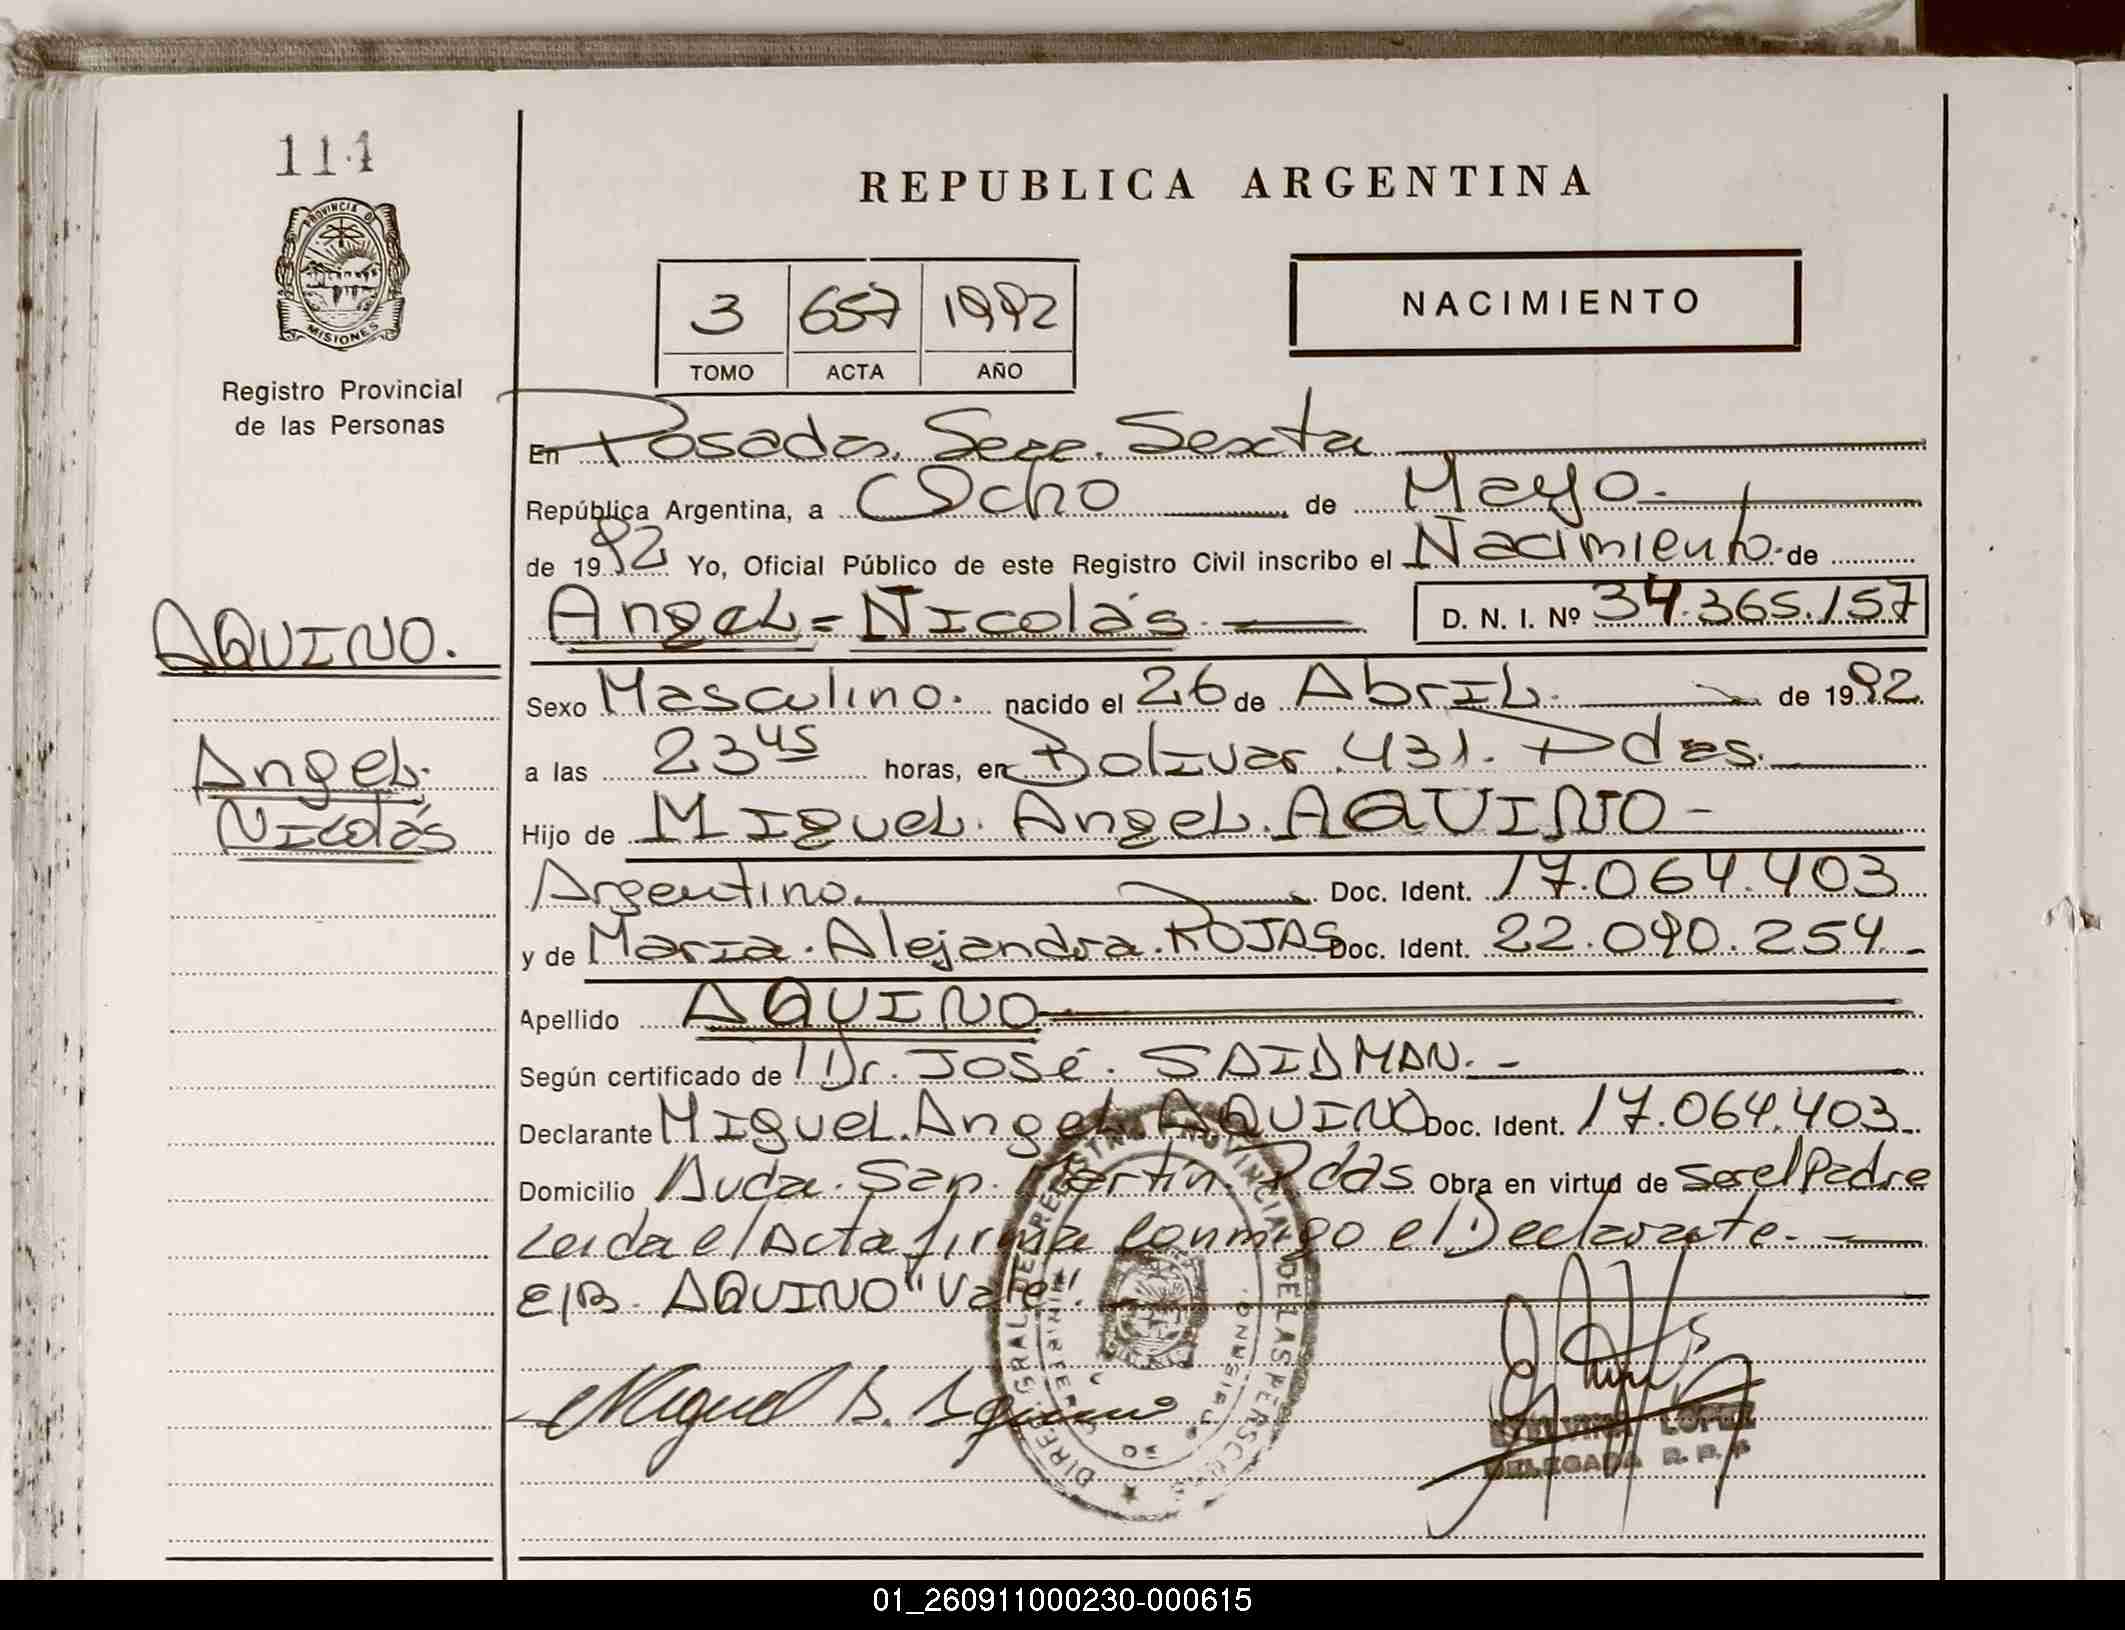 114
PROVINCIA DE
MISIONES
Registro Provincial
de las Personas
REPUBLICA ARGENTINA
3 657 1992
TOMO ACTA AÑO
NACIMIENTO
En Posadas. Secc. Sexta
República Argentina, a Ocho de Mayo.
de 1992 Yo, Oficial Público de este Registro Civil inscribo el Nacimiento. de
AQUINO.
Angel = Nicolás. D. N. I. Nº 34.365.157
Sexo Masculino. nacido el 26 de Abril. de 1992
Angel.
Nicolás
a las 23 45 horas, en Bolivar 431. Pdas.
Hijo de Miguel. Angel. AQUINO -
Argentino. Doc. Ident. 17.064.403
y de Maria. Alejandra. ROJAS Doc. Ident. 22.090.254
Apellido AQUINO
Según certificado de Dr. José. SAIDMAN. -
Declarante Miguel. Angel. AQUINO Doc. Ident. 17.064.403
Domicilio Avda. San. Martín. Pdas Obra en virtud de Ser el Padre
Leida el Acta firma conmigo el Declarante. -
E/R. AQUINO "Vale".
Miguel A. Aquino
LOPEZ
DELEGADA R. P. P
01_260911000230-000615